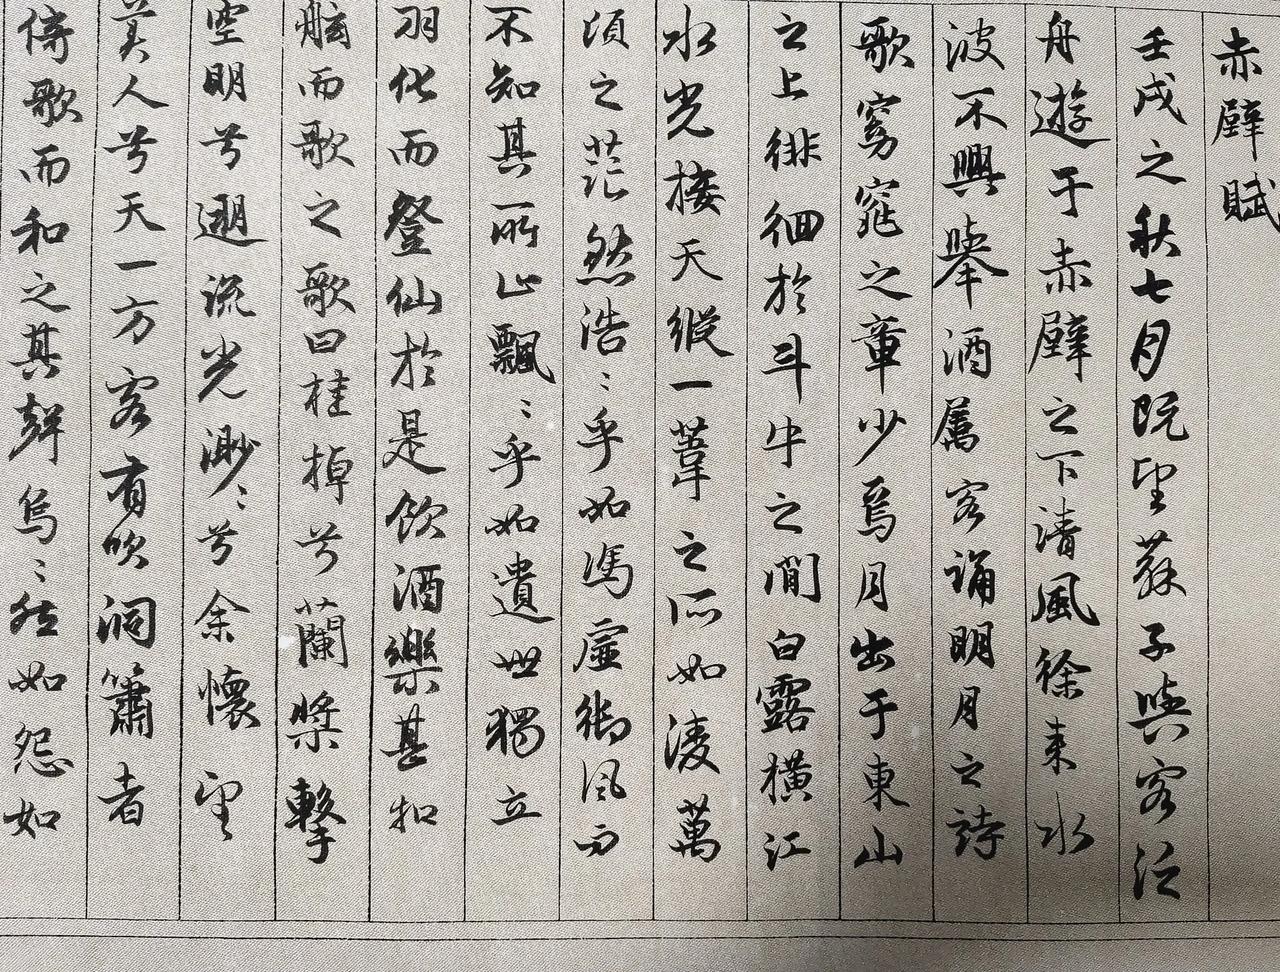 赤壁賦
壬戌之秋七月既望蘇子與客泛
舟遊于赤壁之下清風徐来水
波不興舉酒属客誦明月之詩
歌窈窕之章少焉月出于東山
之上徘徊於斗牛之間白露横江
水光接天縱一葦之所如淩萬
頃之茫然浩〻乎如馮虚御风而
不知其所止飄〻乎如遺世獨立
羽化而登仙於是飲酒樂甚扣
舷而歌之歌曰桂棹兮蘭槳擊
空明兮遡流光渺〻兮余懷望
美人兮天一方客有吹洞簫者
倚歌而和之其聲烏〻然如怨如